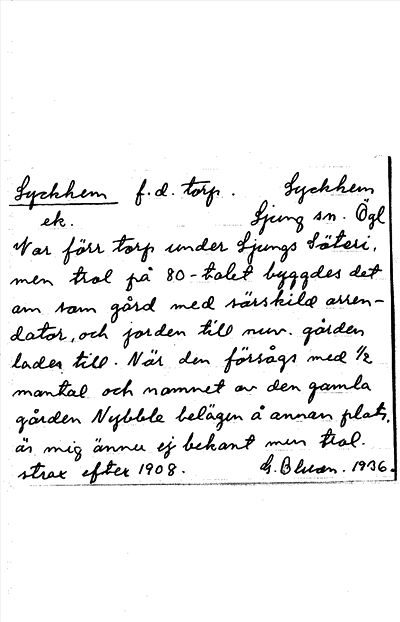 Lyckhem f.d. torp. Lyckhem
ek. Ljung sn. Ögl
Var förr torp under Ljungs Säteri,
men trol på 80-talet byggdes det
om som gård med särskild arren-
dator, och jorden till nuv. gården
lades till. När den försågs med 1/2
mantal och namnet av den gamla
gården Nybble belägen å annan plats,
är mig ännu ej bekant men trol.
strax efter 1908. 1936.